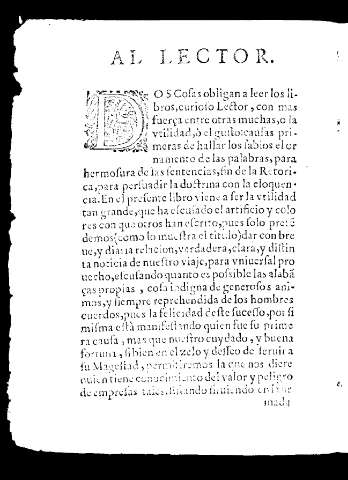 AL LECTOR.
DOS Cosas obligan a leer los li-
bros, curioso Lector, con mas
fuerça entre otras muchas, o la
vtilidad, ò el gusto: causas pri-
meras de hallar los sabios el or
namento de las palabras, para
hermosura de las sentencias, fin de la Retori-
ca, para persuadir la doctrina con la eloquen-
cia. En el presente libro viene a ser la vtilidad
tan grande, que ha escusado el artificio y colo
res con que otros han escrito, pues solo preté
demos (como lo muestra el titulo) dar con bre
ue, y diaria relacion, verdadera, clara, y distin
ta noticia de nuestro viaje, para vniuersal pro
uecho, escusando quanto es possible las alabã
ças propias, cosa indigna de generosos ani-
mos, y siempre reprehendida de los hombres
cuerdos, pues la felicidad deste sucesso, por si
misma està manifestando quien fue su prime
ra causa, mas que nuestro cuydado, y buena
fortuna, si bien en el zelo y desseo de seruir a
su Magestad, permitiremos la que nos diere
quien tiene conocimiento del valor y peligro
de empresas tales, fiando siruiendo en
mada